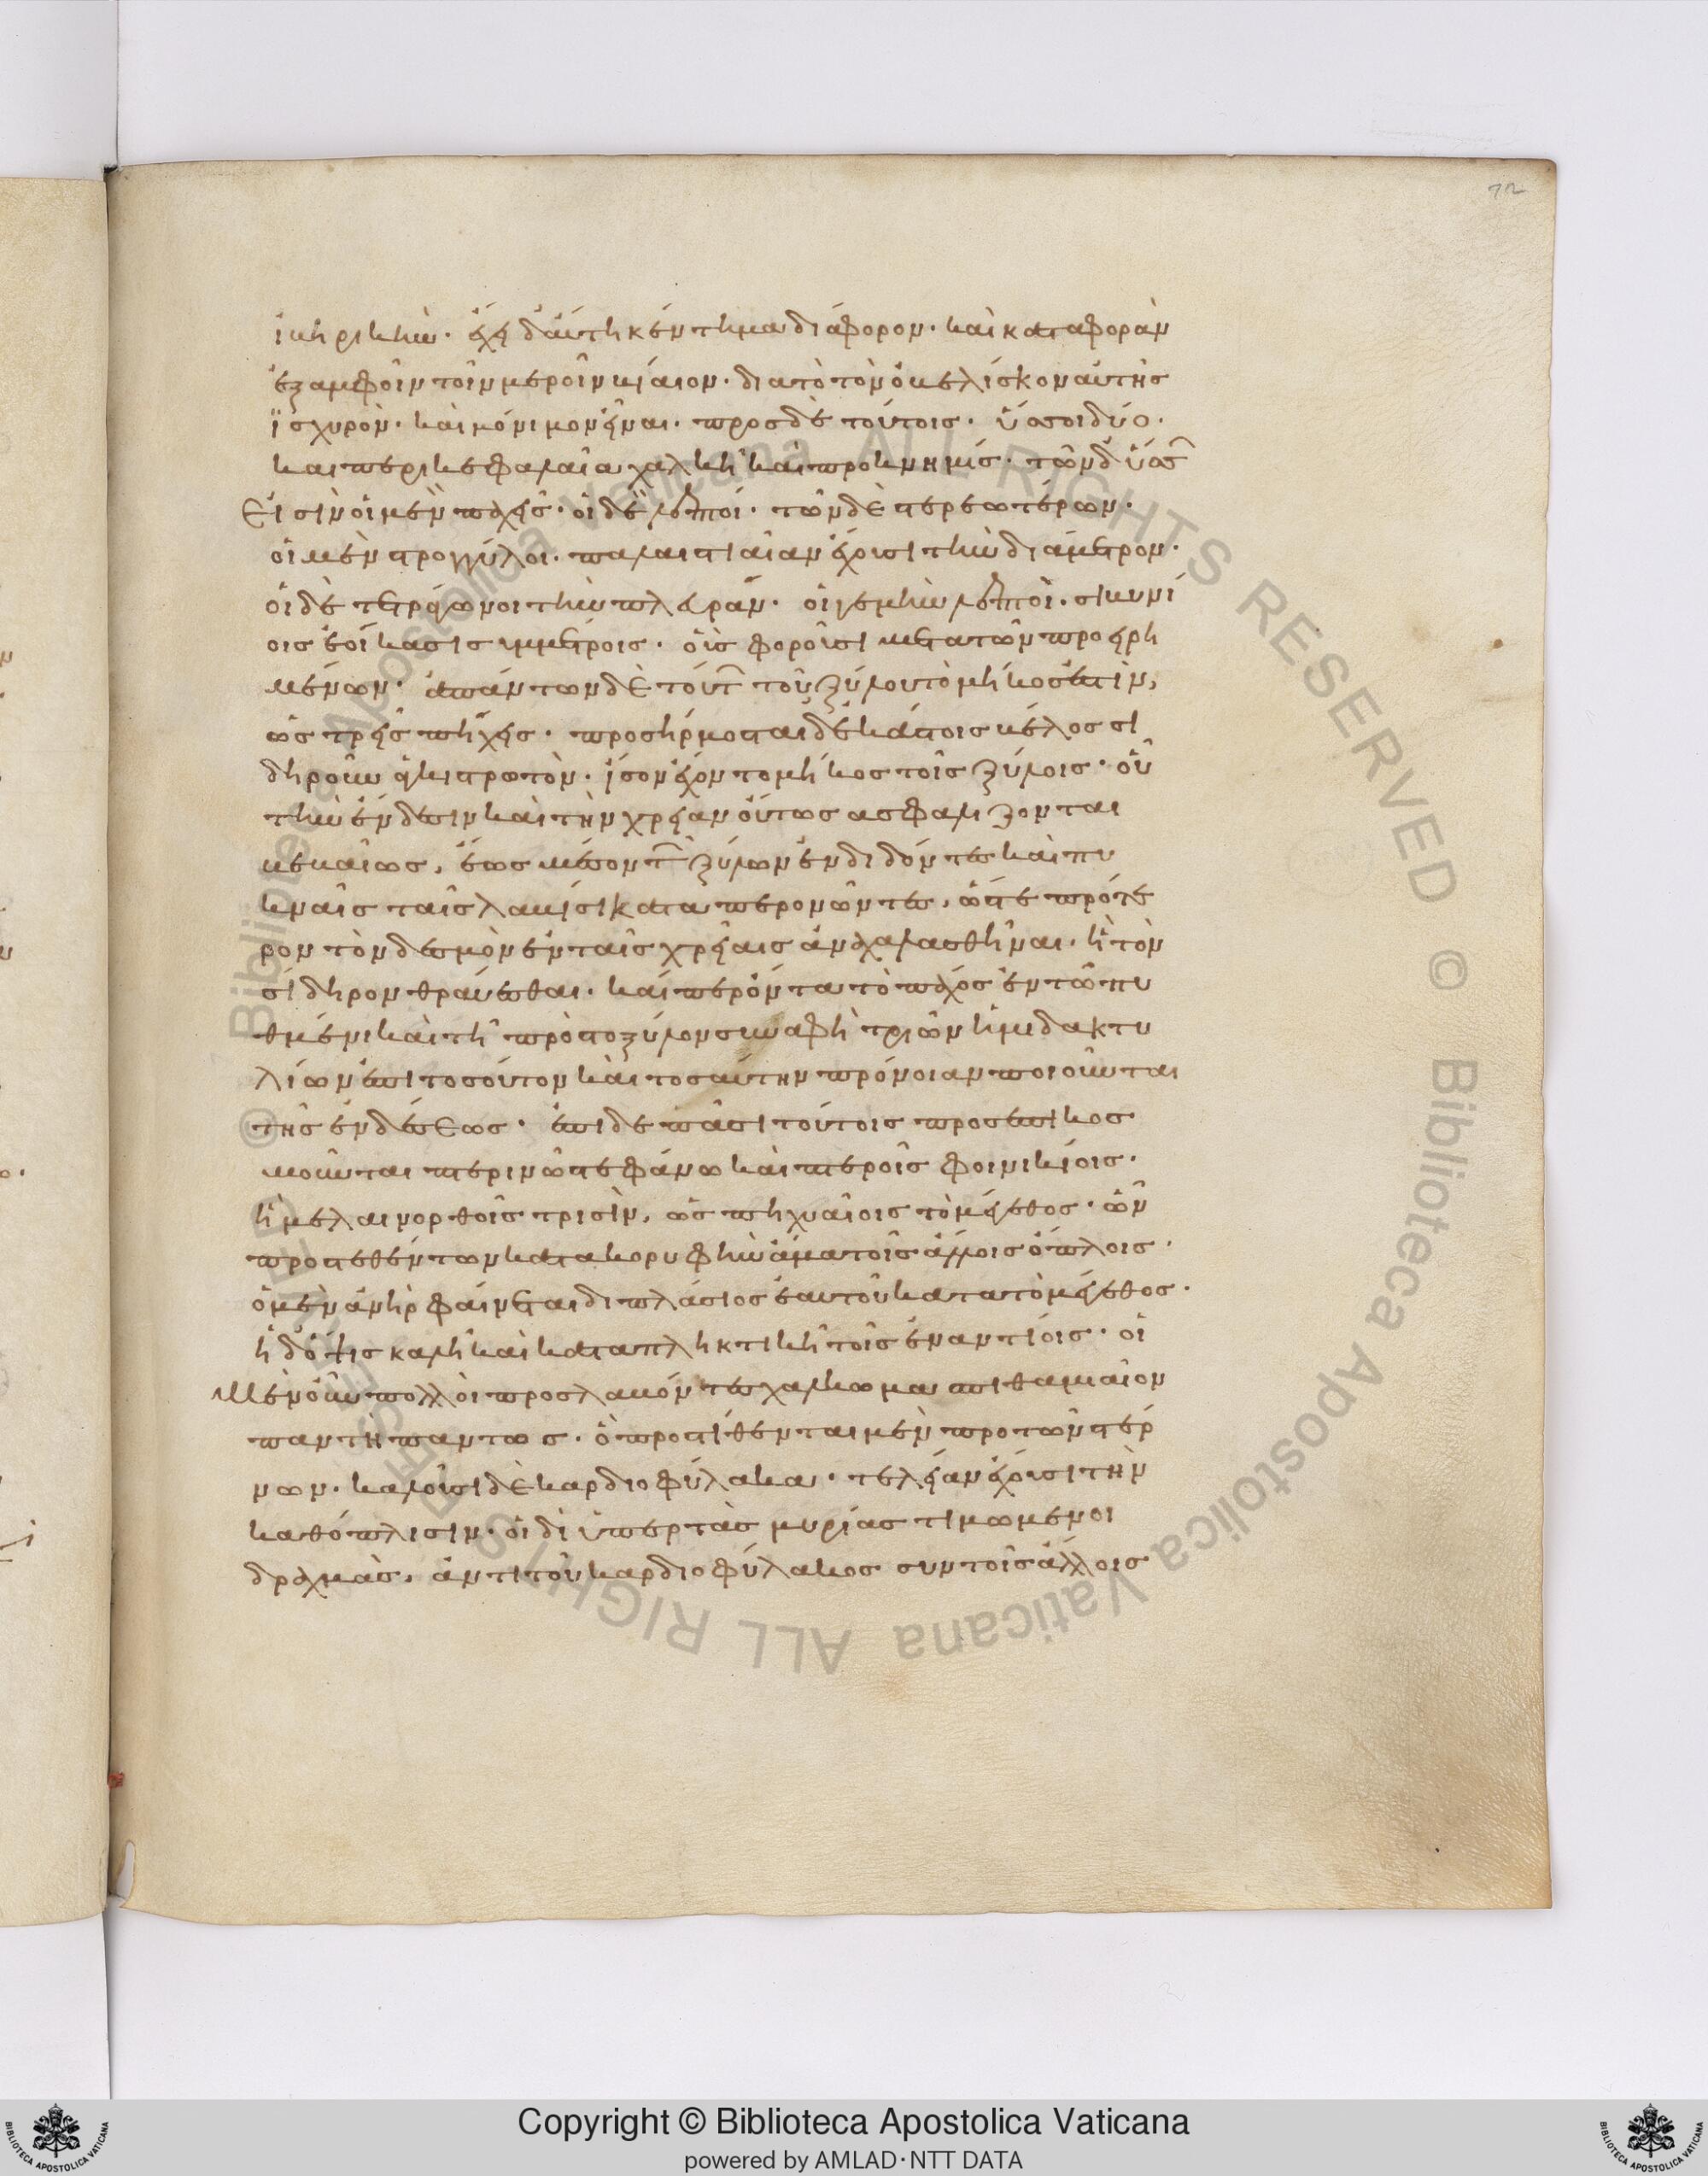 ἰβηρικὴν· ἔχει δ' αὕτη κέντημα διάφορον· καὶ καταφορὰν
ἐξ ἀμφοῖν τοῖν μεροῖν βίαιον· διὰ τὸ τὸν ὀβελίσκον αὐτῆς
ἰσχυρὸν· καὶ μόνιμον εἶναι· πρὸς δὲ τούτοις· ὑσσοὶ δύο·
καὶ περικεφαλαία χαλκῆ καὶ προκνημίς· τῶν δ' ὑσσῶν
Εἰσὶν οἱ μὲν παχεῖς· οἱ δὲ λεπτοί· τῶν δὲ στερεωτέρων·
οἱ μὲν στρογγύλοι· παλαιστιαῖαν ἔχουσι τὴν διάμετρον·
οἱ δὲ τετράγωνοι τὴν πλευράν· οἵ γε μὴν λεπτοὶ· σιβυνί
οις ἐοίκασι συμμέτροις· οὓς φοροῦσι μετὰ τῶν προειρη
μένων· ἁπάντων δὲ τούτων τοῦ ξύλου τὸ μῆκος ἐστὶν,
ὡς τρεῖς πήχεις· προσήρμοσται δὲ κάστοις βέλος σι
δηροῦν ἀγκιστρωτὸν· ἴσον ἔχον τὸ μῆκος τοῖς ξύλοις· οὗ
τὴν ἔνδεσιν καὶ τὴν χρείαν οὕτως ἀσφαλίζονται
βεβαίως, ἕως μέσον τῶν ξύλων ἐνδιδόντες καὶ πυ
κναῖς ταῖς λαβίσι καταπερονῶντες, ὥστε πρότε
ρον τὸν δεσμὸν ἐν ταῖς χρείαις ἀναχαλασθῆναι· ἢ τὸν
σίδηρον θραύεσθαι· καίπερ ὄντα τὸ πάχος ἐν τῶ πυ
θμένι καὶ τῆ πρὸς τὸ ξύλον συναφῆ τριῶν ἡμιδακτυ
λίων ἐπὶ τοσοῦτον καὶ τοσαύτην πρόνοιαν ποιοῦνται
τῆς ἐνδέσεως· ἐπὶ δὲ πᾶσι τούτοις προσεπικοσ
μοῦνται πτερίνω στεφάνω καὶ πτεροῖς φοινικίοις·
ἢ μέλασιν ὀρθοῖς τρισὶν, ὡς πηχυαίοις τὸ μέγεθος· ὧν
προστεθέντων κατὰ κορυφὴν ἅμα τοῖς ἄλλοις ὅπλοις·
ὁ μὲν ἀνὴρ φαίνεται διπλάσιος ἑαυτοῦ κατὰ τὸ μέγεθος·
ἡ δ' ὄψις καλὴ καὶ καταπληκτικὴ τοῖς ἐναντίοις· οἱ
Μὲν οὖν πολλοὶ προσλαβόντες χάλκωμα σπιθαμιαῖον
πάντη πάντως· ὃ προστίθενται μὲν πρὸ τῶν στέρ
νων· καλοῦσι δὲ καρδιοφύλακα· τελείαν ἔχουσι τὴν
καθόπλισιν· οἱ δὲ ὑπὲρ τὰς μυρίας τιμώμενοι
δραχμὰς, ἀντὶ τοῦ καρδιοφύλακος σὺν τοῖς ἄλλοις
72
© Biblioteca Apostolica Vaticana ALL RIGHTS RESERVED © Biblioteca Apostolica Vaticana ALL RIGHTS RESERVED
Copyright © Biblioteca Apostolica Vaticana
powered by AMLAD·NTT DATA
BIBLIOTECA APOSTOLICA VATICANA
BIBLIOTECA APOSTOLICA VATICANA